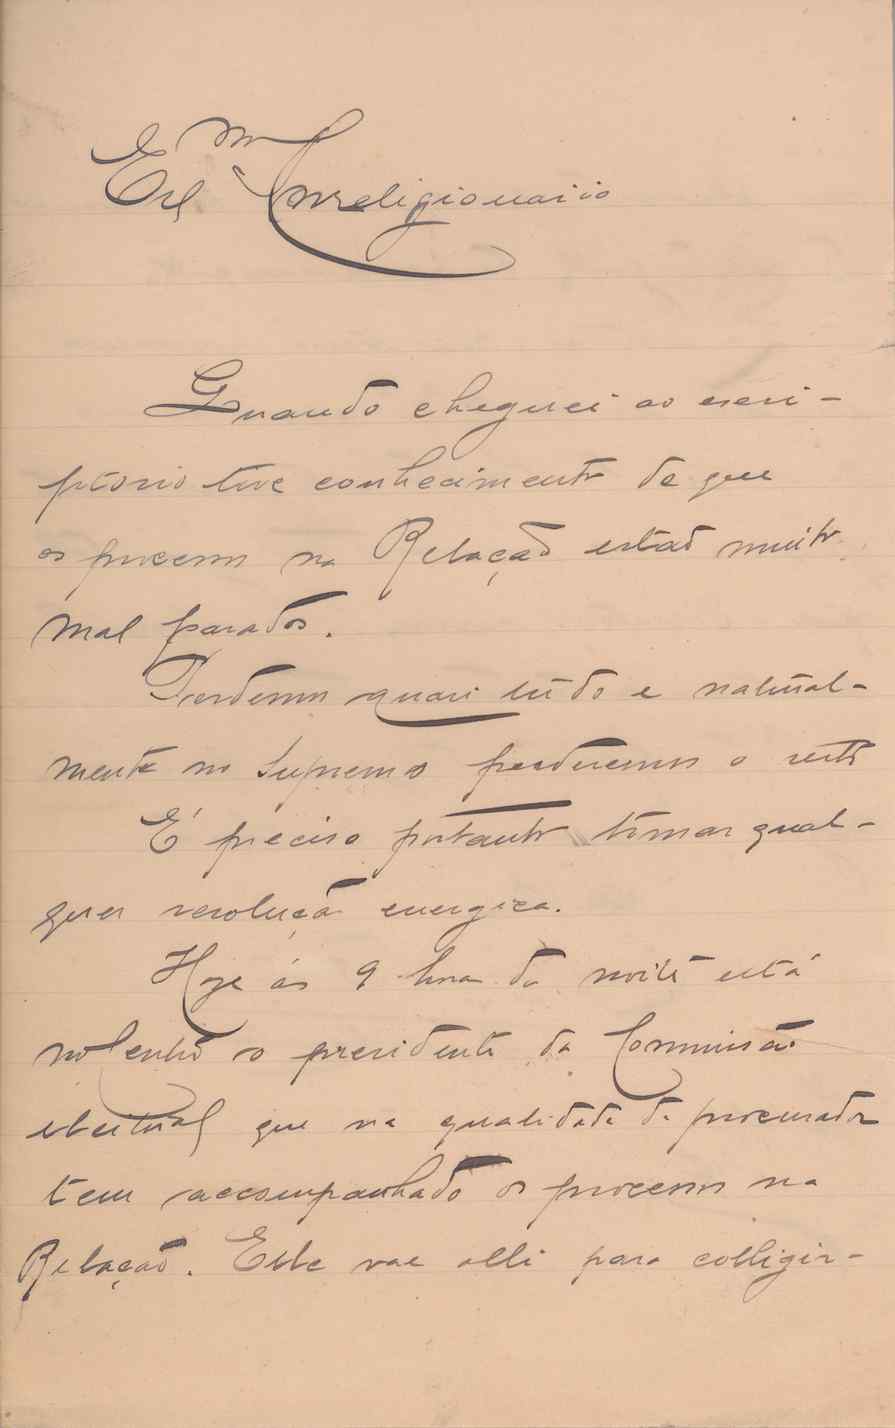 Exmo Correligionario
Quando cheguei ao escri-
ptorio tive conhecimento de que
os processos na Relação estão muito
mal parados.
Perdemos quasi tudo e natural-
mente no Supremo perderemos o resto
É preciso portanto tomar qual-
quer resolução energica.
Hoje ás 9 horas da noite está
no Centro o presidente da Commissão
eleitoral que na qualidade de procurador
tem accompanhado os processos na
Relação. Elle vae alli para colligir-